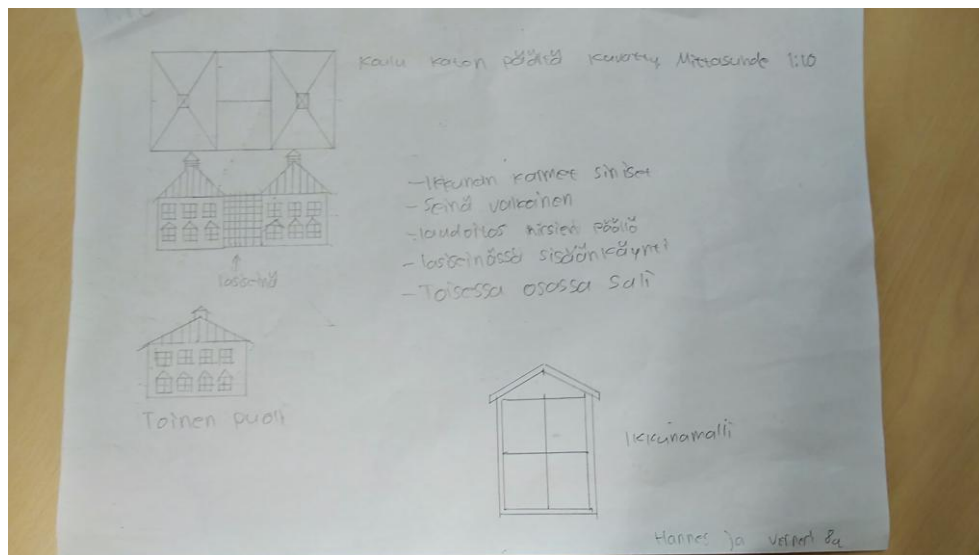 Koulu katon päältä kuvattu Mittasuhde 1:10
-Ikkunan karmet siniset
-Seinä valkoinen
-laudoitos hirsien päällä
-lasiseinässä sisäänkäynti
-Toisessa osassa sali
lasiseinä
Toinen puoli
Ikkunamalli
Hannes ja 8a